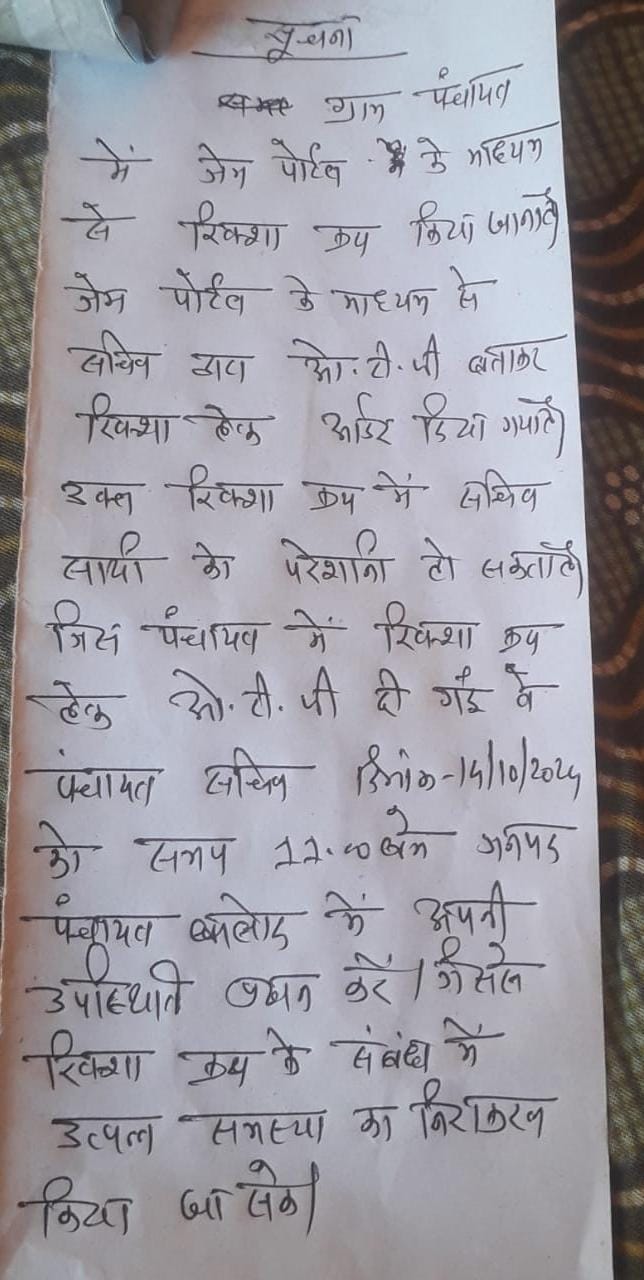 सूचना
ग्राम पंचायत
में जेम पोर्टल के माध्यम
से रिक्शा क्रय किया जाना है
जेम पोर्टल के माध्यम से
सचिव द्वारा ओ.टी.पी बताकर
रिक्शा हेतु आर्डर किया गया है
उक्त रिक्शा क्रय में सचिव
साथी को परेशानी हो सकता है
जिस पंचायत में रिक्शा क्रय
हेतु ओ.टी.पी दी गई वे
पंचायत सचिव दिनांक-14/10/2024
को समय 11.00 बजे जनपद
पंचायत बालोद में अपनी
उपस्थिति प्रदान करें। जिससे
रिक्शा क्रय के संबंध में
उत्पन्न समस्या का निराकरण
किया जा सके।